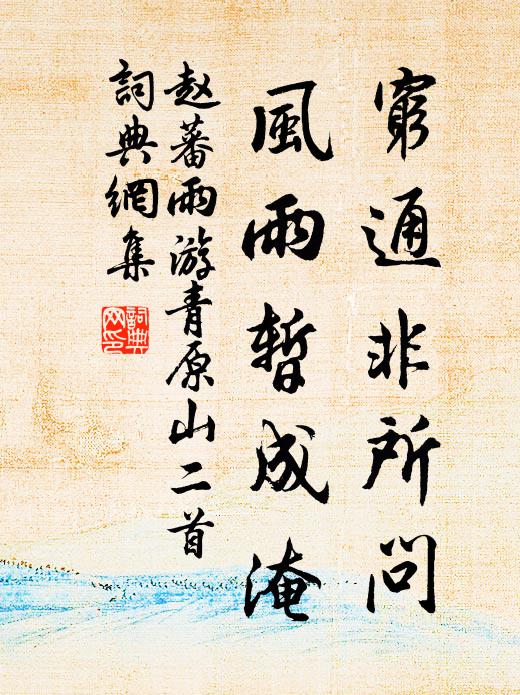 窮通非所問
風雨暫成淹
赵蕃雨游青原山二首
詞典網集
詞典网印